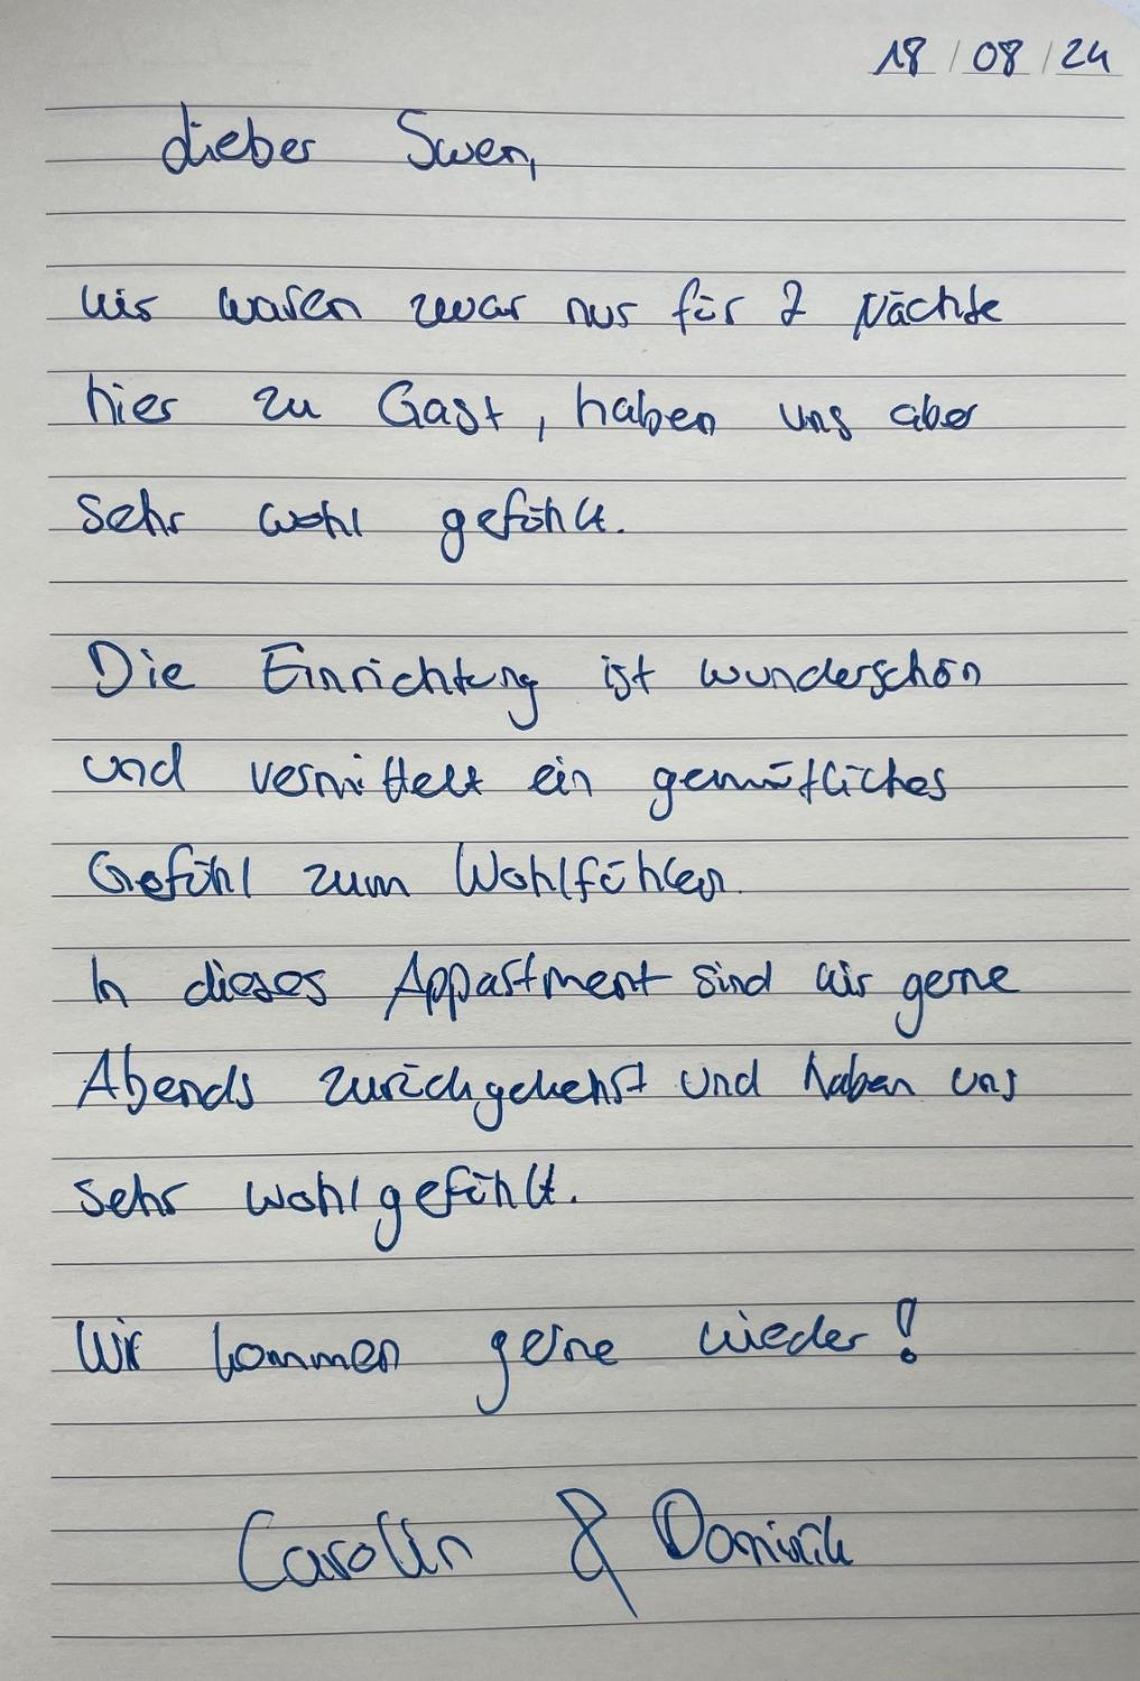 18/08/24
Lieber Swen,
wir waren zwar nur für 2 Nächte
hier zu Gast, haben uns aber
sehr wohl gefühlt.
Die Einrichtung ist wunderschön
und vermittelt ein gemütliches
Gefühl zum Wohlfühlen.
In dieses Appartment sind wir gerne
Abends zurückgekehrt und haben uns
sehr wohlgefühlt.
Wir kommen gerne wieder!
Carolin & Dominik